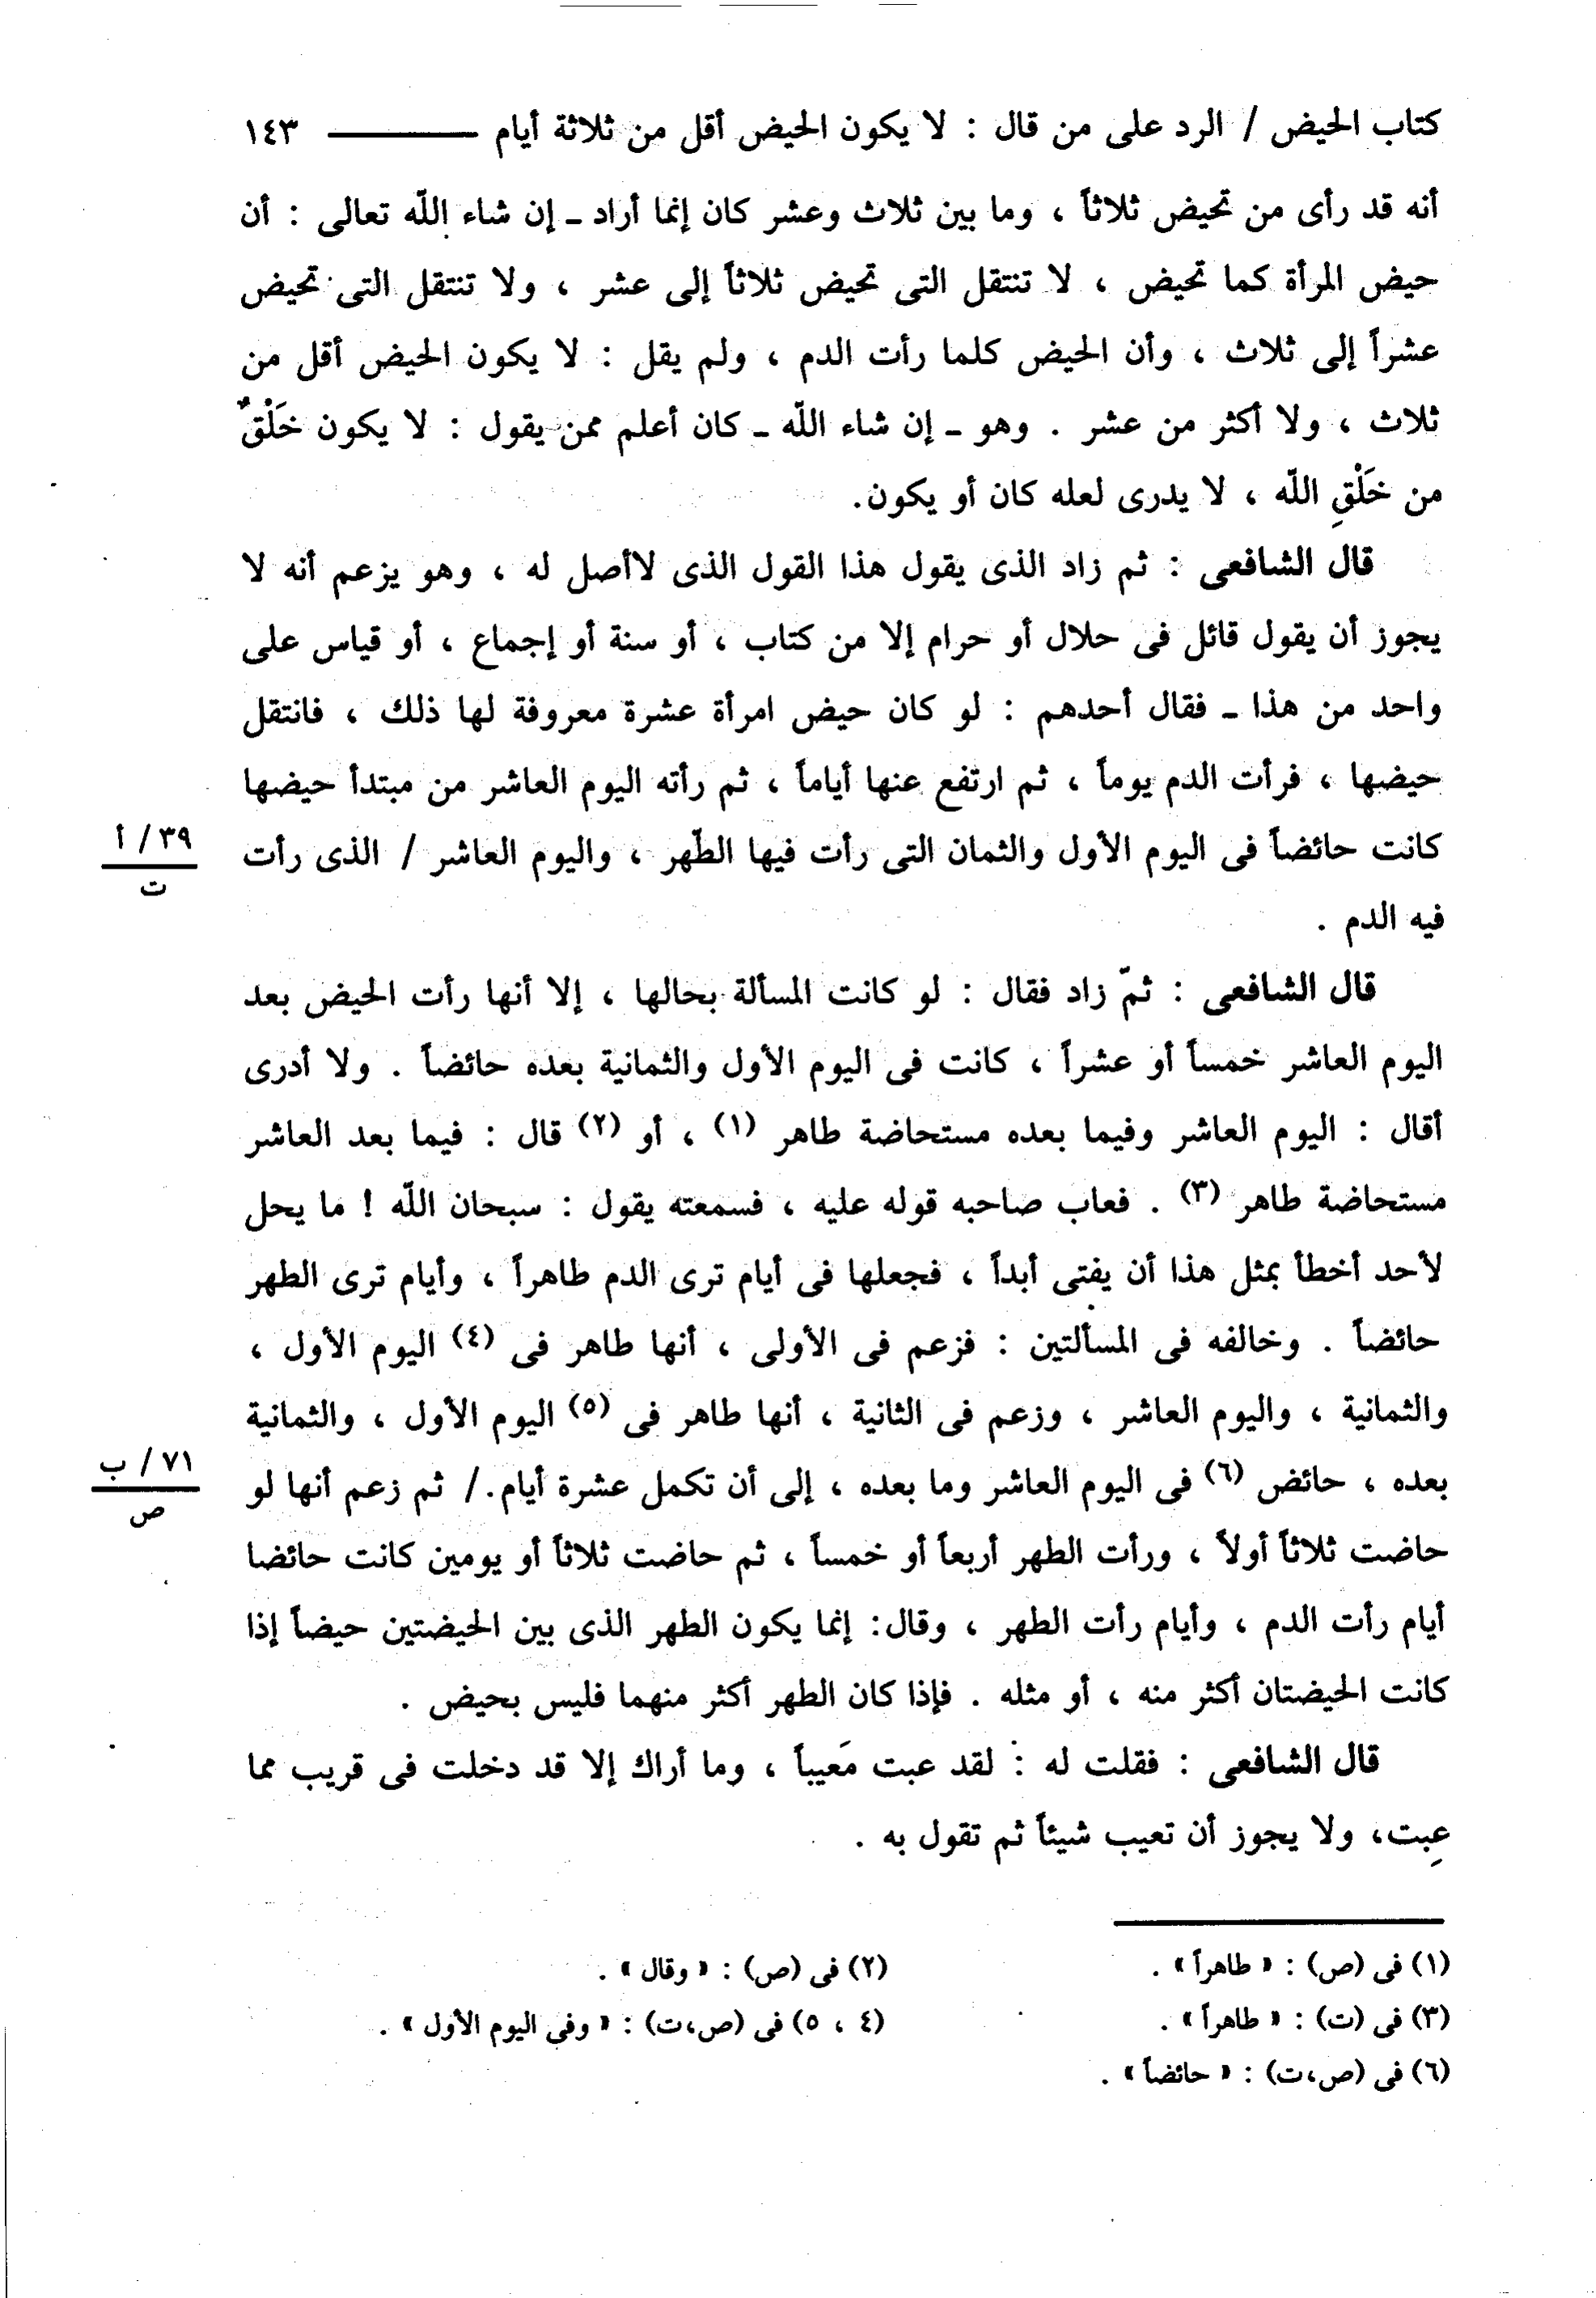 كتاب الحيض / الرد على من قال : لا يكون الحيض أقل من ثلاثة أيام ——— ١٤٣
أنه قد رأى من تحيض ثلاثاً ، وما بين ثلاث وعشر كان إنما أراد ـ إن شاء اللّه تعالى : أن
حيض المرأة كما تحيض ، لا تنتقل التى تحيض ثلاثاً إلى عشر ، ولا تنتقل التى تحيض
عشراً إلى ثلاث ، وأن الحيض كلما رأت الدم ، ولم يقل : لا يكون الحيض أقل من
ثلاث ، ولا أكثر من عشر . وهو ـ إن شاء اللّه ـ كان أعلم ممن يقول : لا يكون خَلْقٌ
من خَلْقِ اللّه ، لا يدرى لعله كان أو يكون.
قال الشافعى : ثم زاد الذى يقول هذا القول الذى لاأصل له ، وهو يزعم أنه لا
يجوز أن يقول قائل فى حلال أو حرام إلا من كتاب ، أو سنة أو إجماع ، أو قياس على
واحد من هذا ـ فقال أحدهم : لو كان حيض امرأة عشرة معروفة لها ذلك ، فانتقل
حيضها ، فرأت الدم يوماً ، ثم ارتفع عنها أياماً ، ثم رأته اليوم العاشر من مبتدأ حيضها
كانت حائضاً فى اليوم الأول والثمان التى رأت فيها الطّهر ، واليوم العاشر / الذى رأت
٣٩ / أ
ت
فيه الدم .
قال الشافعى : ثمّ زاد فقال : لو كانت المسألة بحالها ، إلا أنها رأت الحيض بعد
اليوم العاشر خمساً أو عشراً ، كانت فى اليوم الأول والثمانية بعده حائضاً . ولا أدرى
أقال : اليوم العاشر وفيما بعده مستحاضة طاهر (١) ، أو (٢) قال : فيما بعد العاشر
مستحاضة طاهر (٣) . فعاب صاحبه قوله عليه ، فسمعته يقول : سبحان اللّه ! ما يحل
لأحد أخطأ بمثل هذا أن يفتى أبداً ، فجعلها فى أيام ترى الدم طاهراً ، وأيام ترى الطهر
حائضاً . وخالفه فى المسألتين : فزعم فى الأولى ، أنها طاهر فى (٤) اليوم الأول ،
والثمانية ، واليوم العاشر ، وزعم فى الثانية ، أنها طاهر فى (٥) اليوم الأول ، والثمانية
بعده ، حائض (٦) فى اليوم العاشر وما بعده ، إلى أن تكمل عشرة أيام. / ثم زعم أنها لو
٧١ / ب
ص
حاضت ثلاثاً أولاً ، ورأت الطهر أربعاً أو خمساً ، ثم حاضت ثلاثاً أو يومين كانت حائضا
أيام رأت الدم ، وأيام رأت الطهر ، وقال: إنما يكون الطهر الذى بين الحيضتين حيضاً إذا
كانت الحيضتان أكثر منه ، أو مثله . فإذا كان الطهر أكثر منهما فليس بحيض .
قال الشافعى : فقلت له : لقد عبت مَعيباً ، وما أراك إلا قد دخلت فى قريب مما
عِبت، ولا يجوز أن تعيب شيئاً ثم تقول به .
(١) فى (ص) : « طاهراً » .
(٢) فى (ص) : « وقال » .
(٣) فى (ت) : « طاهراً » .
(٤ ، ٥) فى (ص،ت) : « وفى اليوم الأول » .
(٦) فى (ص،ت) : « حائضاً » .